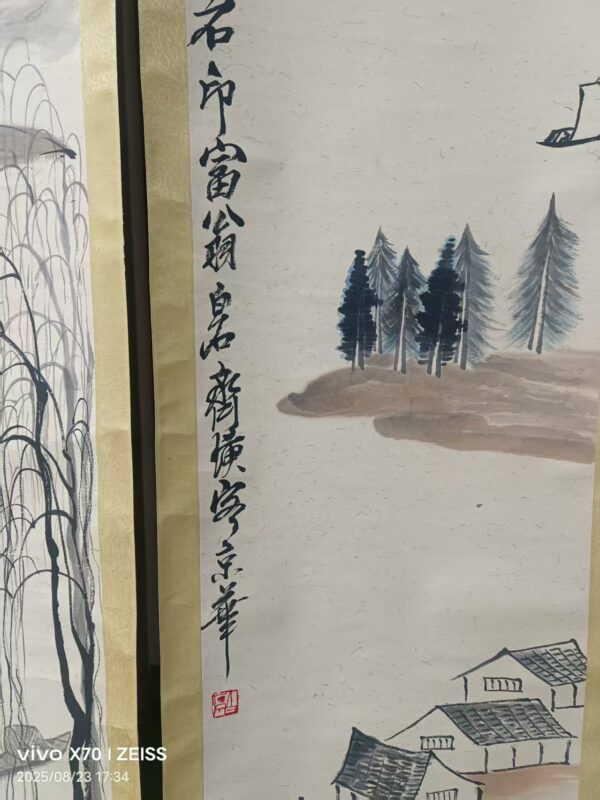 石印富翁白石齊璜客京華
vivo X70 | ZEISS
2025/08/23 17:34